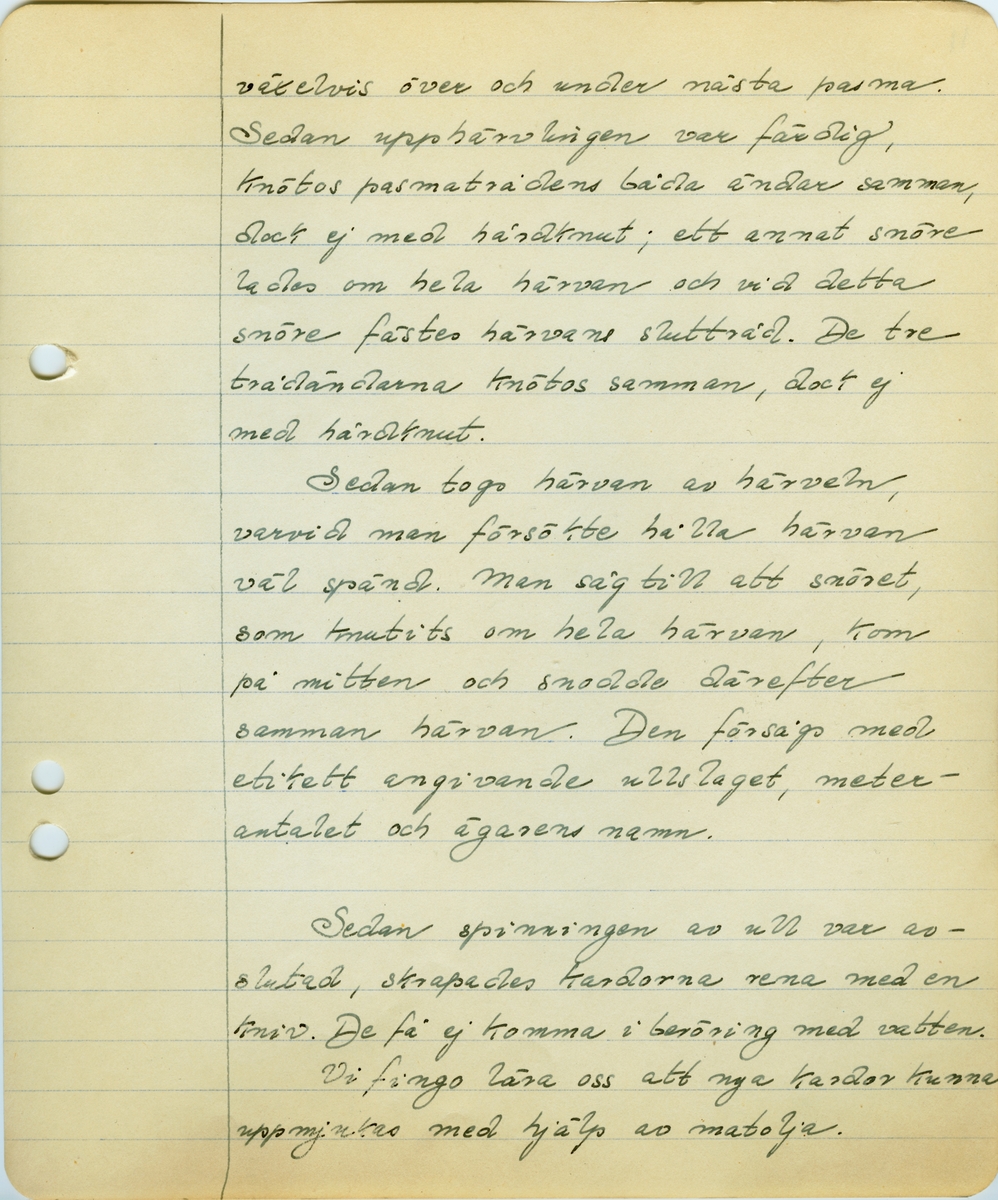 växelvis över och under nästa pasma.
Sedan upphärvlingen var färdig,
knötos pasmatrådens båda ändar samman,
dock ej med hårdknut; ett annat snöre
lades om hela härvan och vid detta
snöre fästes härvans sluttråd. De tre
trådändarna knötos samman, dock ej
med hårdknut.
Sedan togs härvan av härveln,
varvid man försökte hålla härvan
väl spänd. Man såg till att snöret,
som knutits om hela härvan, kom
på mitten och snodde därefter
samman härvan. Den försågs med
etikett angivande ullslaget, meter-
antalet och ägarens namn.
Sedan spinningen av ull var av-
slutad, skrapades kardorna rena med en
kniv. De få ej komma i beröring med vatten.
Vi fingo lära oss att nya kardor kunna
uppmjukas med hjälp av matolja.